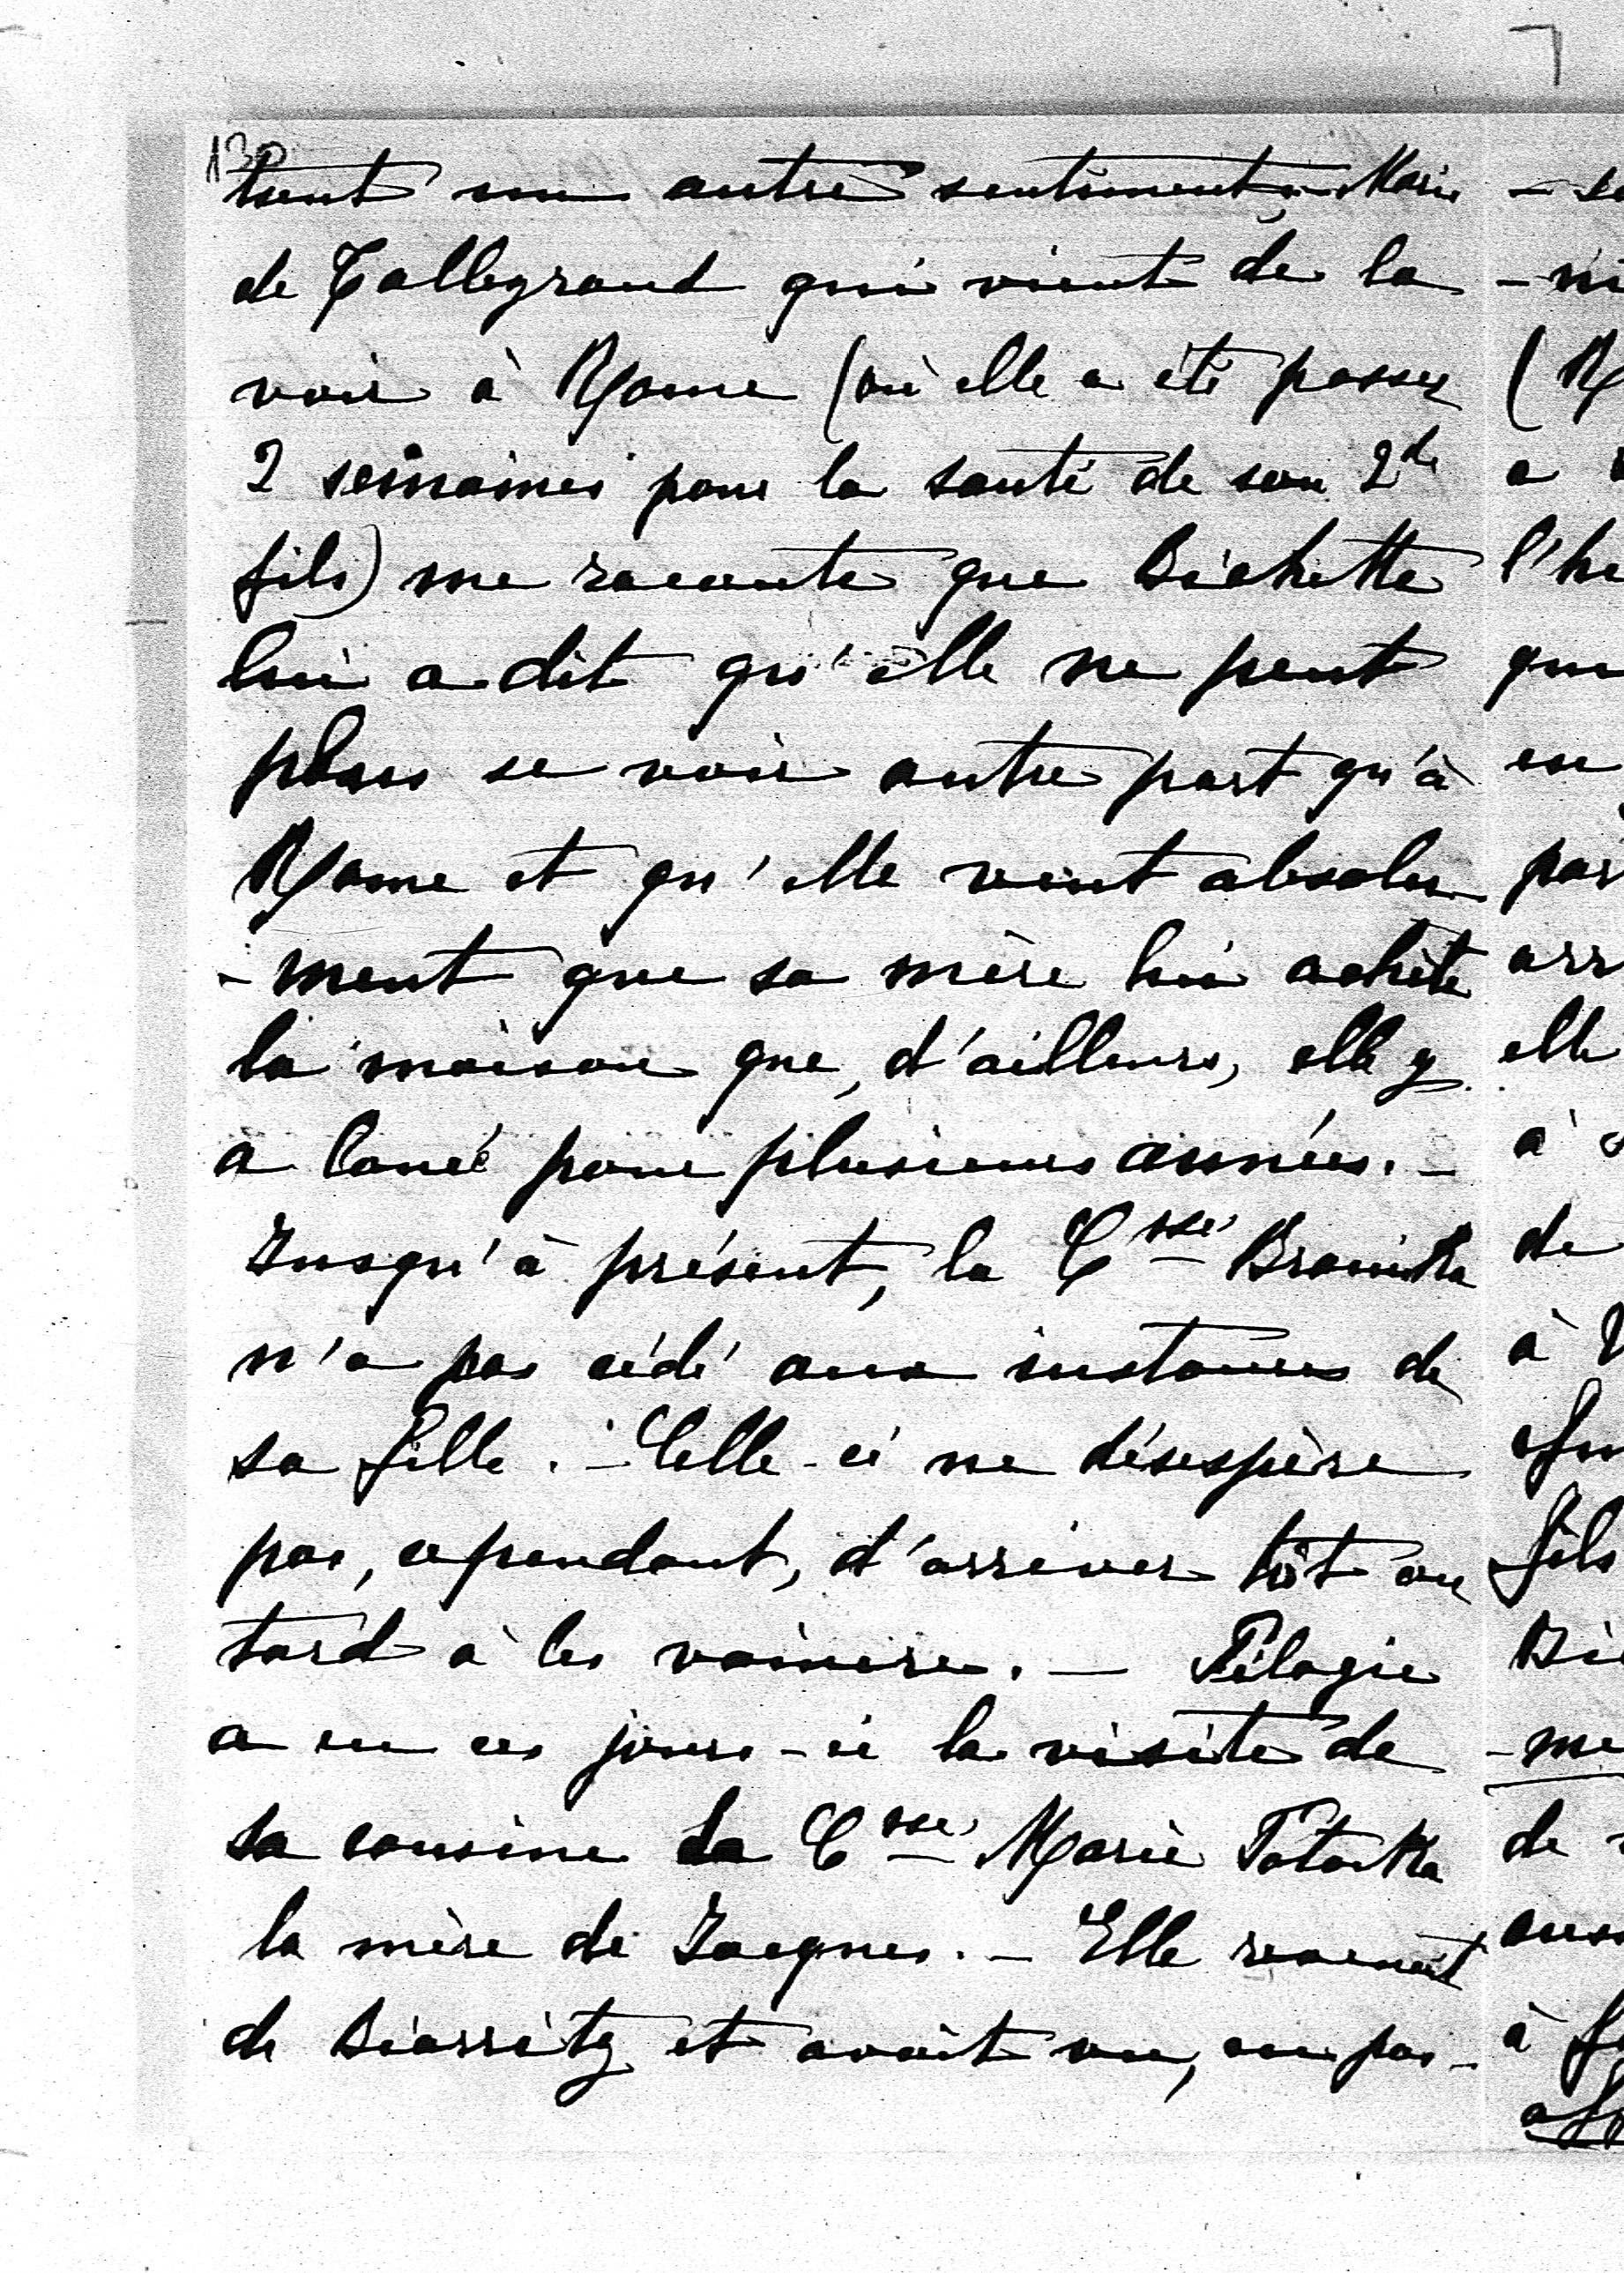 130
tout un autre sentiment; Marie
de Talleyrand qui vient de la
voir à Rome (où elle a été passer
2 semaines pour la santé de son 2d
fils) me raconte que Bichette
lui a dit qu'elle ne peut
plus se voir autre part qu'à
Rome et qu'elle veut absolu
-ment que sa mère lui achète
la maison que, d'ailleurs, elle y
a louée pour plusieurs années. -
Jusqu'à présent, la Csse Branicka
n'a pas cédé aux instances de
sa fille. - Celle-ci ne désespère
pas, cependant, d'arriver tôt ou
tard à les vaincre. - Pélagie
a eu ces jours-ci la visite de
sa cousine la Csse Marie Potocka
la mère de Jacques. - Elle revenait
de Biarritz et avait vu, en pas-